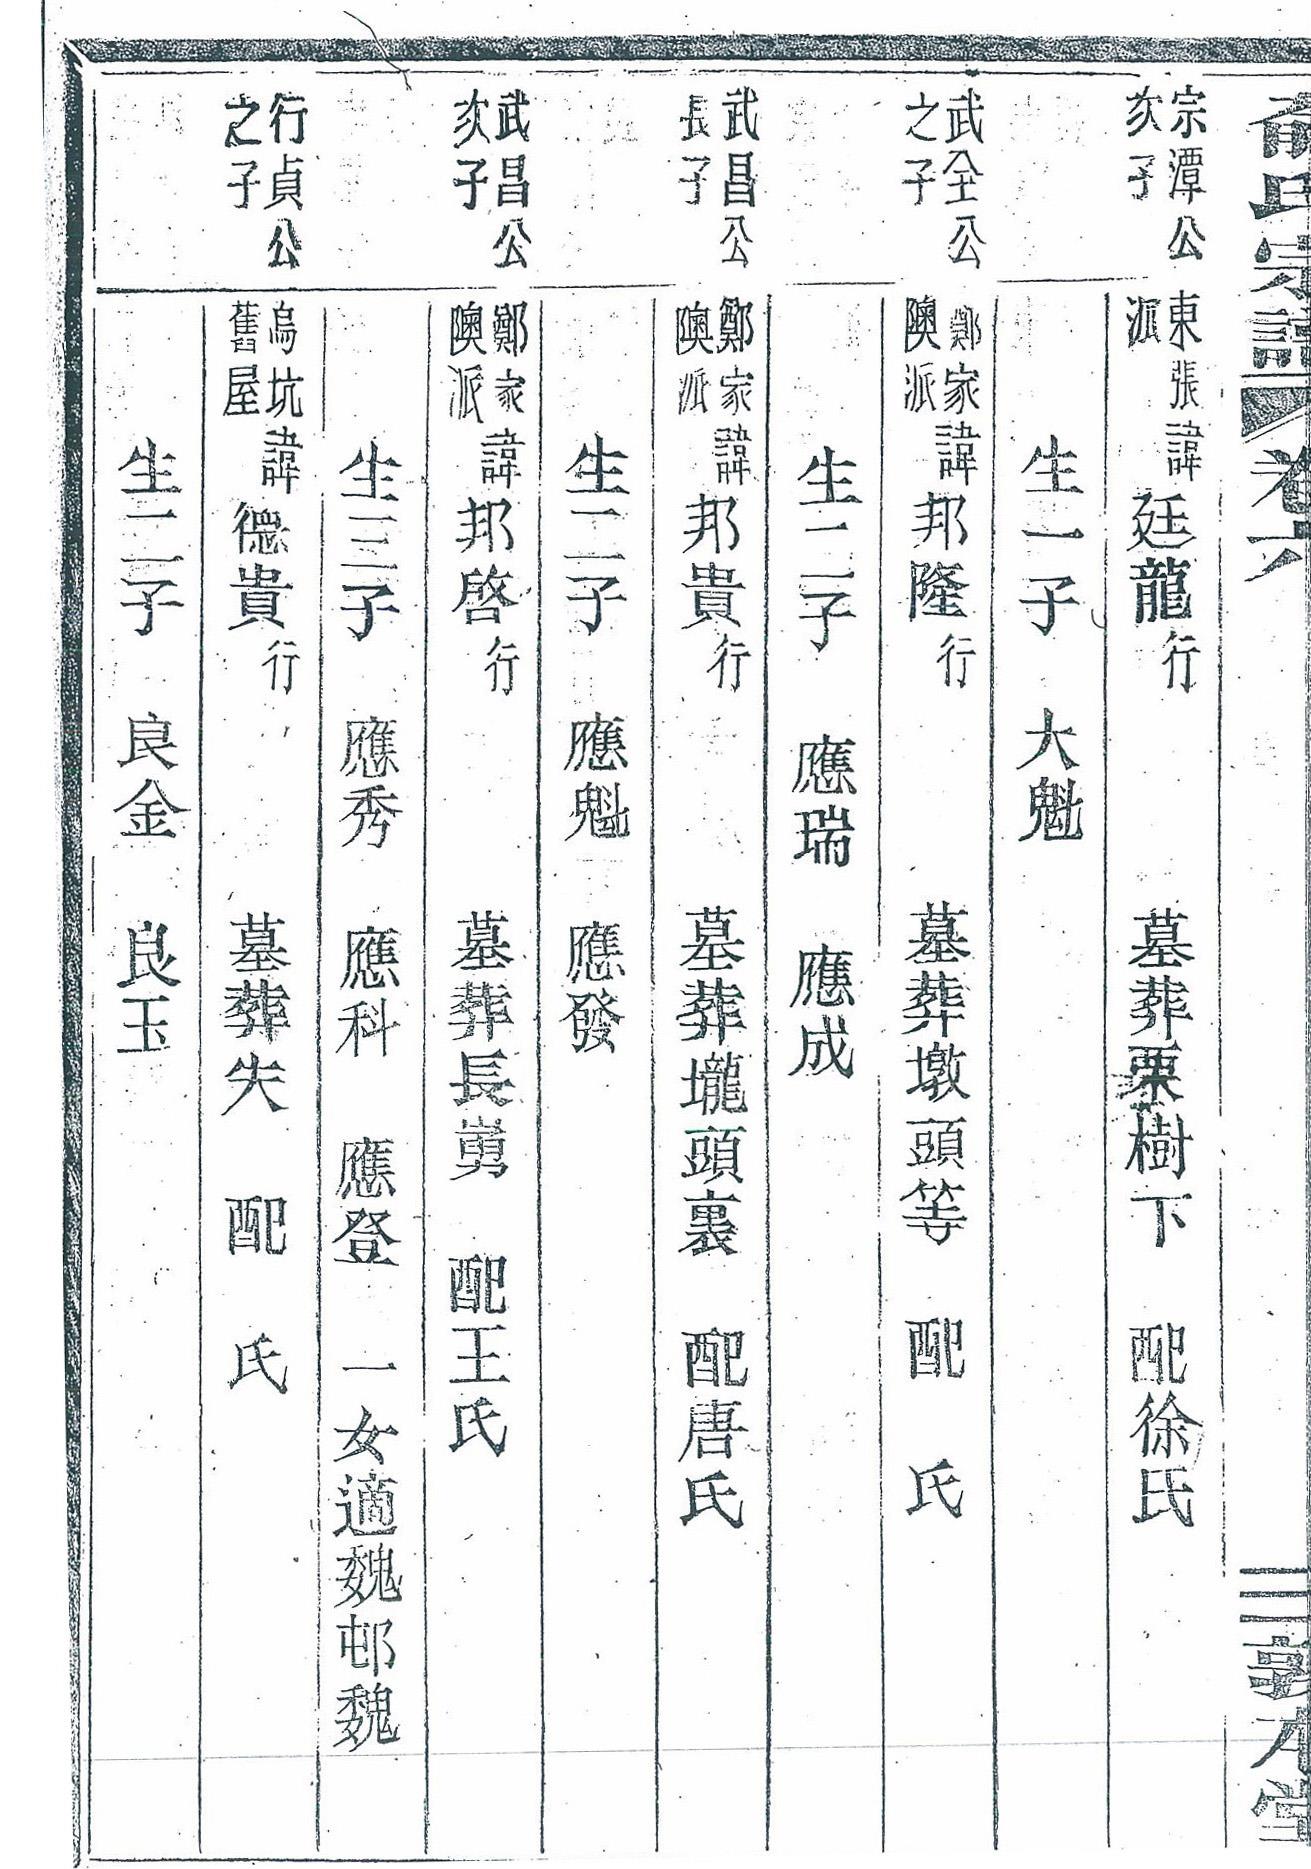 氏宗譜 卷六 三 敦本堂
宗潭公
次子
東張
派
諱廷龍行 墓葬栗樹下 配徐氏
生一子 大魁
武全公
之子
鄭家
隩派
諱邦隆行 墓葬墩頭等 配 氏
生二子 應瑞 應成
武昌公
長子
鄭家
隩派
諱邦貴行 墓葬壠頭裏 配唐氏
生二子 應魁 應發
武昌公
次子
鄭家
隩派
諱邦啓行 墓葬長塢 配王氏
生三子 應秀 應科 應登 一女適魏邨魏
行貞公
之子
烏坑
舊屋
諱德貴行 墓葬失 配 氏
生二子 良金 良玉